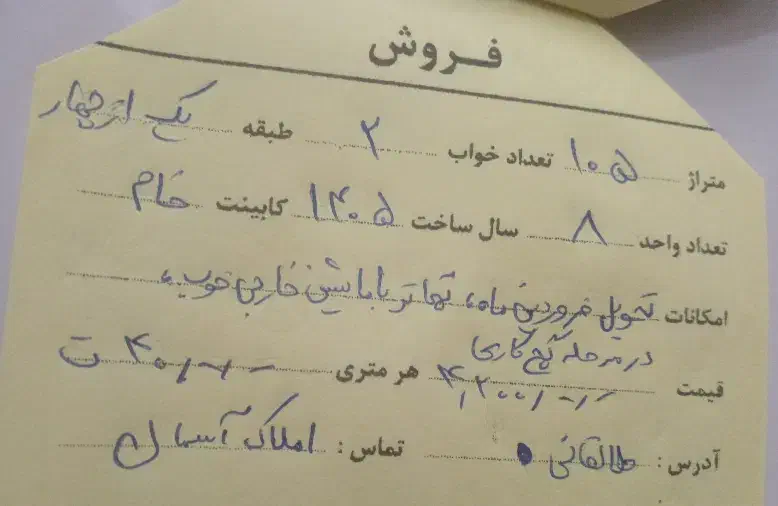 فروش
متراژ ۱۰۵ تعداد خواب ۲ طبقه یک از چهار
تعداد واحد ۸ سال ساخت ۱۴۰۵ کابینت خام
امکانات تحویل فروردین ماه، تهاتر با ماشین خارجی خوب،
در مرحله گچ کاری
قیمت ۴,۲۰۰/۰۰۰/ هر متری ۴۰/۰۰۰/ ت
آدرس : طالقانی تماس : املاک آسمان